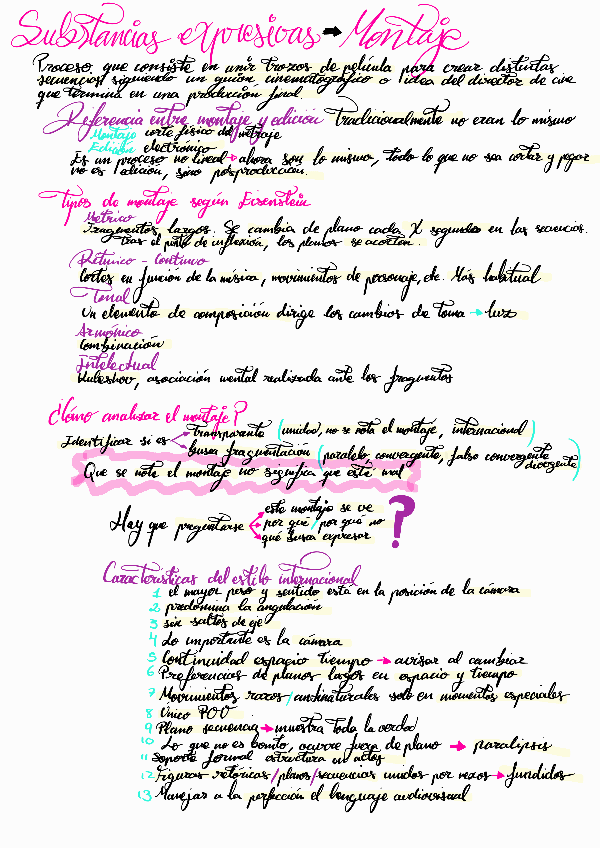 Substancias expresivas → Montaje
Proceso que consiste en unir trozos de película para crear distintas
secuencias siguiendo un guión cinematográfico o idea del director de cine
que termina en una producción final.
Referencia entre montaje y edición Tradicionalmente no eran lo mismo
Montaje corte físico del metraje
Edición electrónigo
Es un proceso no lineal → ahora son lo mismo, todo lo que no sea cortar y pegar
no es edición, sino posproducción.
Tipos de montaje según Eisenstein
Métrico
Fragmentos largos. Se cambia de plano cada X segundos en las secuencias.
Tras el punto de inflexión, los planos se acortan.
Rítmico - Continuo
Cortes en función de la música, movimientos de personaje, etc. Más habitual
Tonal
Un elemento de composición dirige los cambios de toma → luz
Armónico
Combinación
Intelectual
Kuleshov, asociación mental realizada ante los fragmentos
¿Cómo analizar el montaje?
Identificar si es
Transparente (unidad, no se nota el montaje, internacional)
busca fragmentación (paralelo convergente, falso convergente divergente)
Que se note el montaje no significa que esté mal
Hay que preguntarse
este montaje se ve
por qué / por qué no
qué busca expresar
?
Características del estilo internacional
1 el mayor peso y sentido está en la posición de la cámara
2 predomina la angulación
3 sin saltos de eje
4 Lo importante es la cámara
5 Continuidad espacio tiempo → avisar al cambiar
6 Preferencias de planos largos en espacio y tiempo
7 Movimientos raros / antinaturales solo en momentos especiales
8 Único POV
9 Plano secuencia → muestra toda la verdad
10 Lo que no es bonito, ocurre fuera de plano → paralipsis
11 Soporte formal estructura en actos
12 Figuras retóricas / planos / secuencias unidos por nexos → fundidos
13 Manejar a la perfección el lenguaje audiovisual